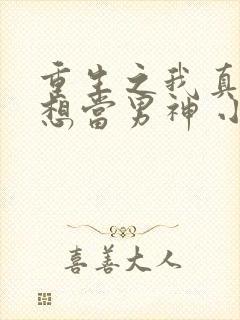 重生之我真
想当男神 小
喜善大人